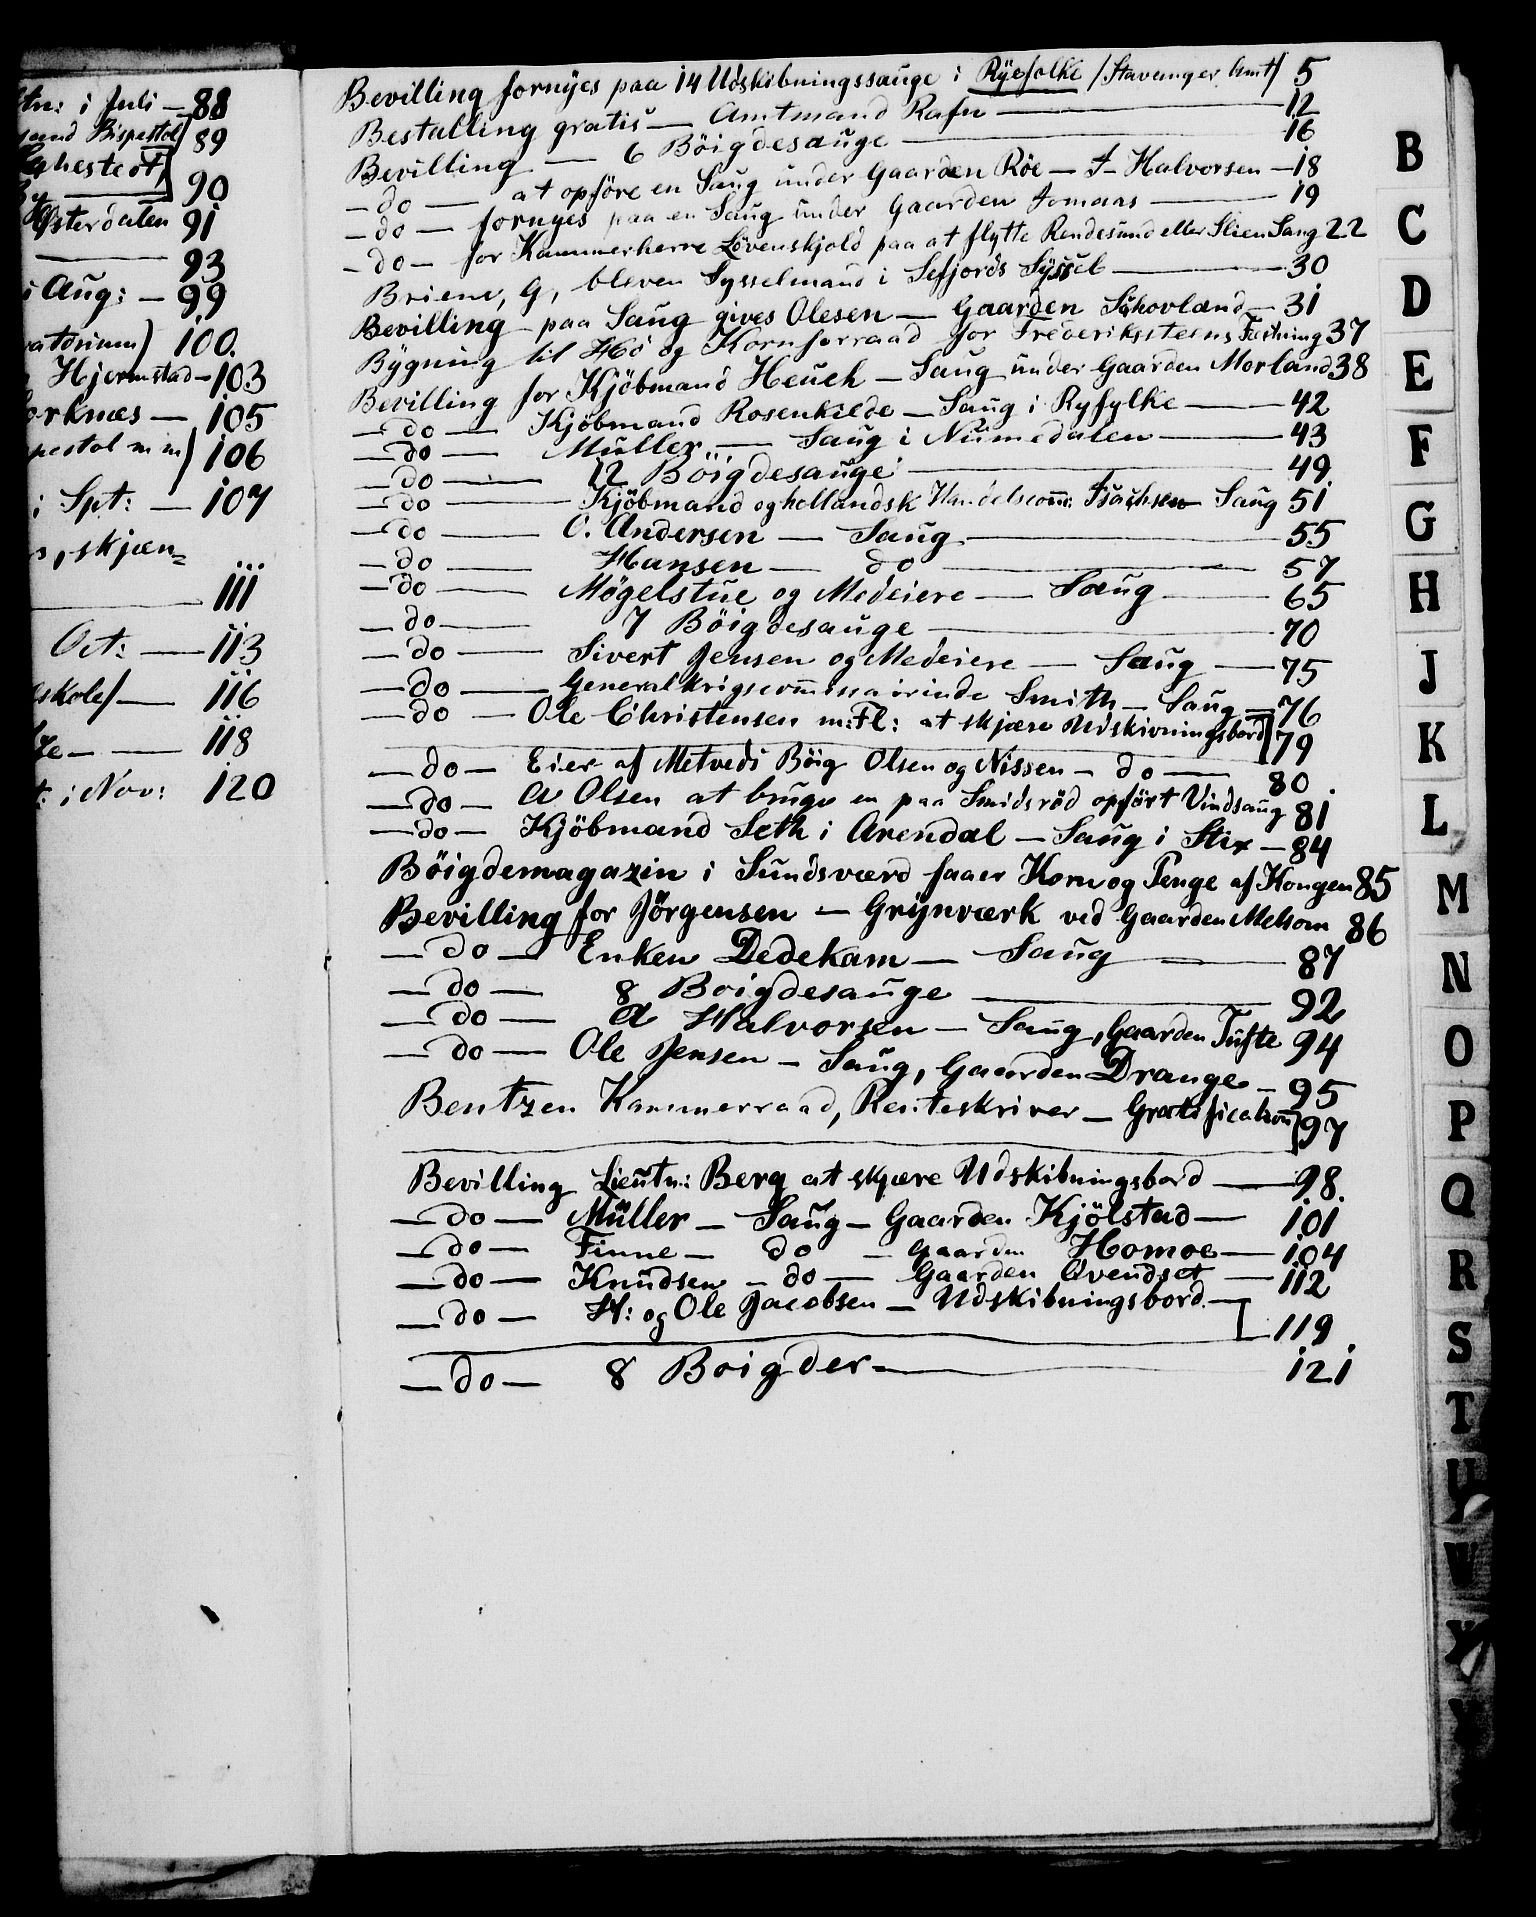 tn: i Juli — 88
sand Bispestol 89
90
Østerdalen 91
93
i Aug: — 99
ratorium) 100.
Hjermstad — 103
orknæs — 105
pestol m m) 106
i Spt: — 107
, skjæn=
111
Oct: — 113
skole/ — 116
118
t: i Nov: 120
Bevilling fornyes paa 14 Udskibningssauge i Ryefolke /Stavanger Amt/ 5
Bestalling gratis — Amtmand Rafn — 12
Bevilling — 6 Böigdesauge — 16
— do — at opföre en Saug under Gaarden Röe — A. Halvorsen — 18
— do — fornyes paa en Saug under Gaarden Aomaas — 19
— do — for Kammerherre Lövenskjold paa at flytte Rendesund eller Slien Saug 22
Briene, G, bleven Sysselmand i Sefjords Syssel — 30
Bevilling — paa Saug gives Olesen — Gaarden Skhovland — 31
Bygning til Hö og Kornforraad for Frederikssteens Fæstning 37
Bevilling for Kjöbmand Heuch — Saug under Gaarden Morland 38
— do — Kjöbmand Rosenkilde — Saug i Ryfylke — 42
— do — Müller — Saug i Numedalen — 43
— do — 12 Böigdesauge — 49
— do — Kjöbmand og hollandsk Handelscom: Isachsen Saug 51
— do — O. Andersen — Saug — 55
— do — Hansen — do — 57
— do — Møgelstue og Medeiere — Saug — 65
— do — 7 Böigdesauge — 70
— do — Sivert Jensen og Medeiere — Saug — 75
— do — Generalkrigscommissairinde Smith — Saug — 76
— do — Ole Christensen m: Fl: at skjære Udskivningsbord 79
— do — Eier af Metveds Böig Olsen og Nissen — do — 80
— do — A Olsen at bruge en paa Smidsröd opfört Vindsaug 81
— do — Kjöbmand Seth i Arendal — Saug i Stix — 84
Böigdemagazin i Sundsværd faaer Korn og Penge af Kongen 85
Bevilling for Jörgensen — Grynværk ved Gaarden Melsom 86
— do — Enken Dedekam — Saug — 87
— do — 8 Boigdesauge — 92
— do — A Halvorsen — Saug, Gaarden Tufte 94
— do — Ole Jensen — Saug, Gaarden Drange — 95
Bentzen Kammerraad, Renteskriver — Gratification 97
Bevilling Lieutn: Berg at skjære Udskibningsbord — 98.
— do — Müller — Saug — Gaarden Kjölstad — 101
— do — Finne — do — Gaarden Homoe — 104
— do — Knudsen — do — Gaarden Qvendset — 112
— do — H: og Ole Jacobsen — Udskibningsbord — 119
— do — 8 Boigder — 121
B
C
D
E
F
G
H
J
K
L
M
N
O
P
Q
R
S
T
U
W
X
Y